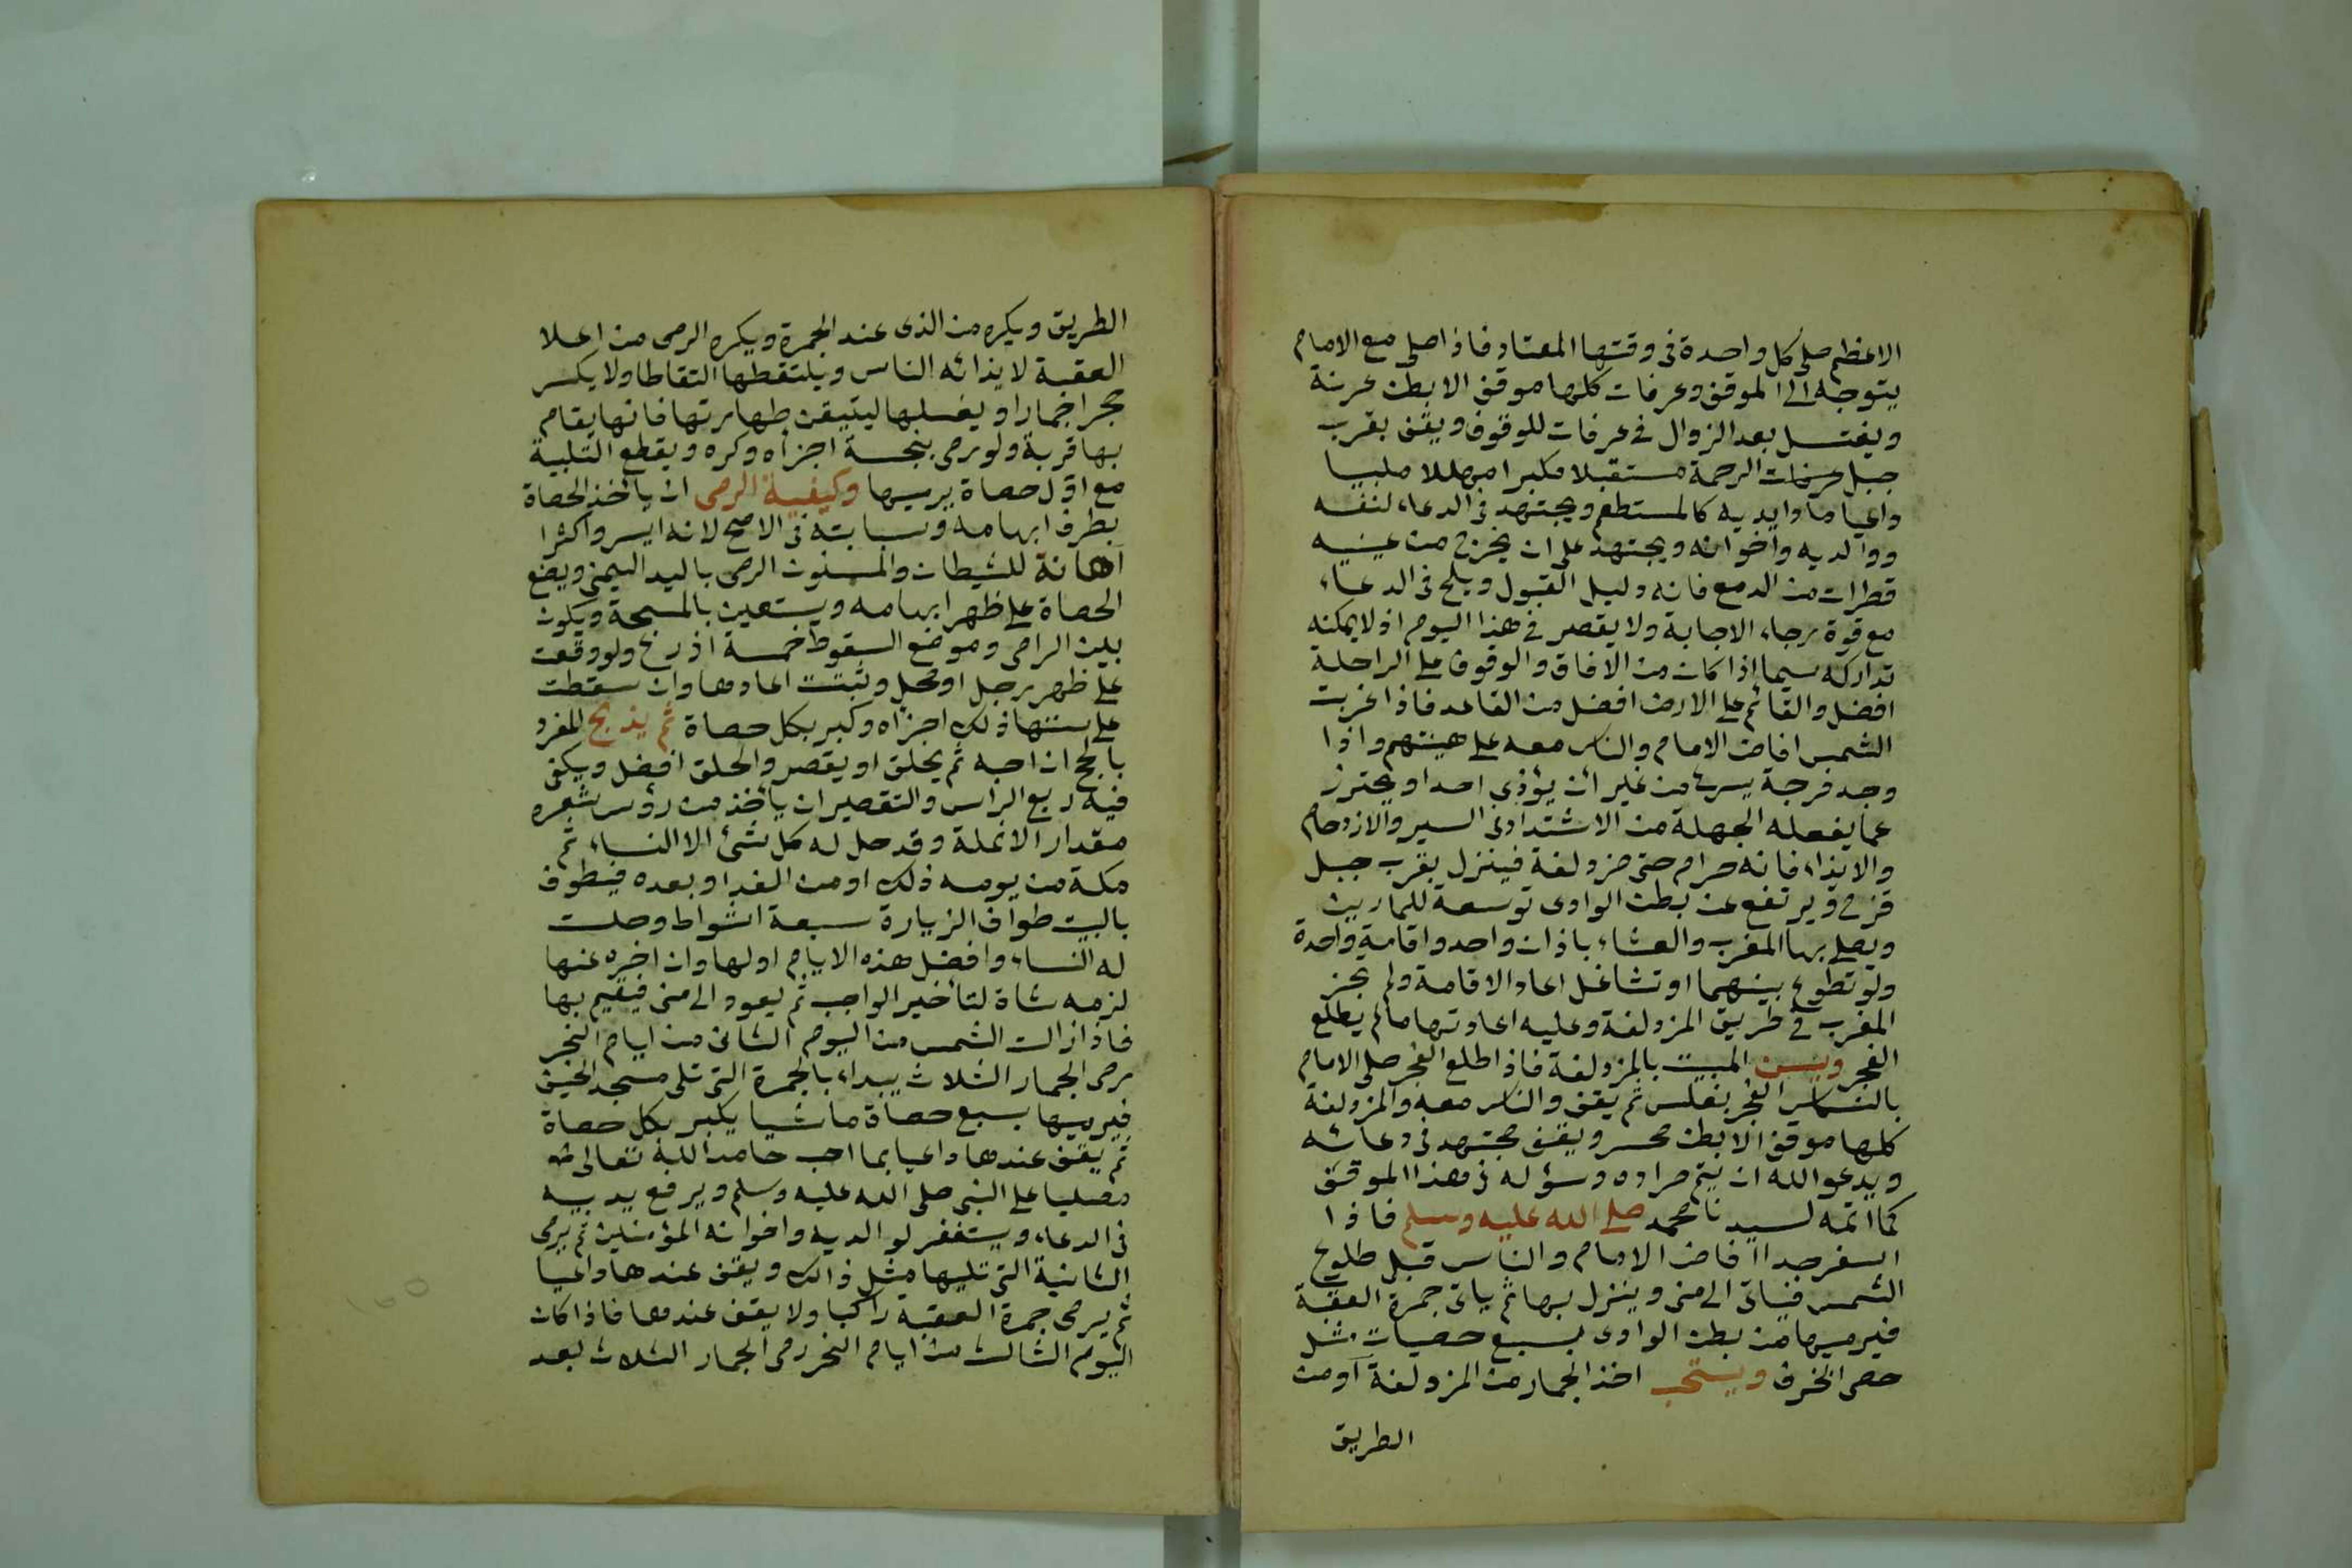 الاعظم صلى كل واحدة فى وقتها المعتاد فاذا صلى مع الامام
يتوجه الى الموقف وعرفات كلها موقف الا بطن عرنة
ويغتسل بعد الزوال فى عرفات للوقوف ويقف بقرب
جبل عرفات الرحمة مستقبلا مكبرا مهللا ملبيا
داعيا مادا يديه كالمستطعم ويجتهد فى الدعاء لنفسه
ووالديه واخوانه ويجتهد على ان يخرج من عينيه
قطرات من الدمع فانه دليل القبول ويلح فى الدعاء
مع قوة رجاء الاجابة ولا يقصر فى هذا اليوم اذ لا يمكنه
تداركه سيما اذا كان من الافاق والوقوف على الراحلة
افضل والقائم على الارض افضل من القاعد فاذا غربت
الشمس افاض الامام والناس معه على هينتهم واذا
وجد فرجة يسرع من غير أن يؤذى احدا ويحترز
عما يفعله الجهلة من الاشتداد فى السير والازدحام
والايذاء فانه حرام حتى مزدلفة فينزل بقرب جبل
قزح ويرتفع عن بطن الوادى توسعة للمارين
ويصلى بها المغرب والعشاء باذان واحد واقامة واحدة
ولو تطوع بينهما او تشاغل اعاد الاقامة ولم يجز
المغرب فى طريق المزدلفة وعليه اعادتها مالم يطلع
الفجر ويسن المبيت بالمزدلفة فاذا طلع الفجر صلى الامام
بالناس الفجر بغلس ثم يقف والناس معه والمزدلفة
كلها موقف الا بطن محسر ويقف مجتهد فى دعائه
ويدعو الله ان يتم مراده وسؤله فى هذا الموقف
كما اتمه لسيدنا محمد صلى الله عليه وسلم فاذا
اسفر جدا افاض الامام والناس قبل طلوع
الشمس فياتى الى منى وينزل بها ثم ياتى جمرة العقبة
فيرميها من بطن الوادى بسبع حصيات مثل
حصى الخزف ويستحب اخذ الجمار من المزدلفة أو من
الطريق
الطريق ويكره من الذى عند الجمرة ويكره الرمى من اعلا
العقبة لايذائه الناس ويلتقطها التقاطا ولا يكسر
حجرا جمارا ويغسلها ليتيقن طهارتها فانها يقام
بها قربة ولو رمى بنجسة اجزأه وكره ويقطع التلبية
مع اول حصاة يرميها وكيفية الرمى ان يأخذ الحصاة
بطرف ابهامه وسبابته فى الاصح لانه ايسر واكثرا
اهانة للشيطان والمسنون الرمى باليد اليمنى ويضع
الحصاة على ظهر ابهامه ويستعين بالمسبحة ويكون
بين الرامى وموضع السقوط خمسة اذرع ولو وقعت
على ظهر رجل او محمل وثبتت اعادها وان سقطت
على سننها ذلك اجزاه وكبر بكل حصاة ثم يذبح المفرد
بالحج ان احبه ثم يحلق او يقصر والحلق افضل ويكفى
فيه ربع الراس والتقصير ان يأخذ من رؤس شعره
مقدار الانملة وقد حل له كل شئ الا النساء ثم
مكة من يومه ذلك او من الغد او بعده فيطوف
بالبيت طواف الزيارة سبعة اشواط وحلت
له النساء وافضل هذه الايام اولها وان اخره عنها
لزمه شاة لتأخير الواجب ثم يعود الى منى فيقيم بها
فاذا زالت الشمس من اليوم الثانى من ايام النحر
رمى الجمار الثلاث يبداء بالجمرة التى تلى مسجد الخيف
فيرميها بسبع حصاة ماشيا يكبر بكل حصاة
ثم يقف عندها داعيا بما احب حامدا لله تعالى
مصليا على النبى صلى الله عليه وسلم ويرفع يديه
فى الدعاء ويستغفر لوالديه واخوانه المؤمنين ثم يرمى
الثانية التى تليها مثل ذالك ويقف عندها داعيا
ثم يرمى جمرة العقبة راكبا ولا يقف عندها فاذا كان
اليوم الثالث من ايام النحر رمى الجمار الثلاث بعد